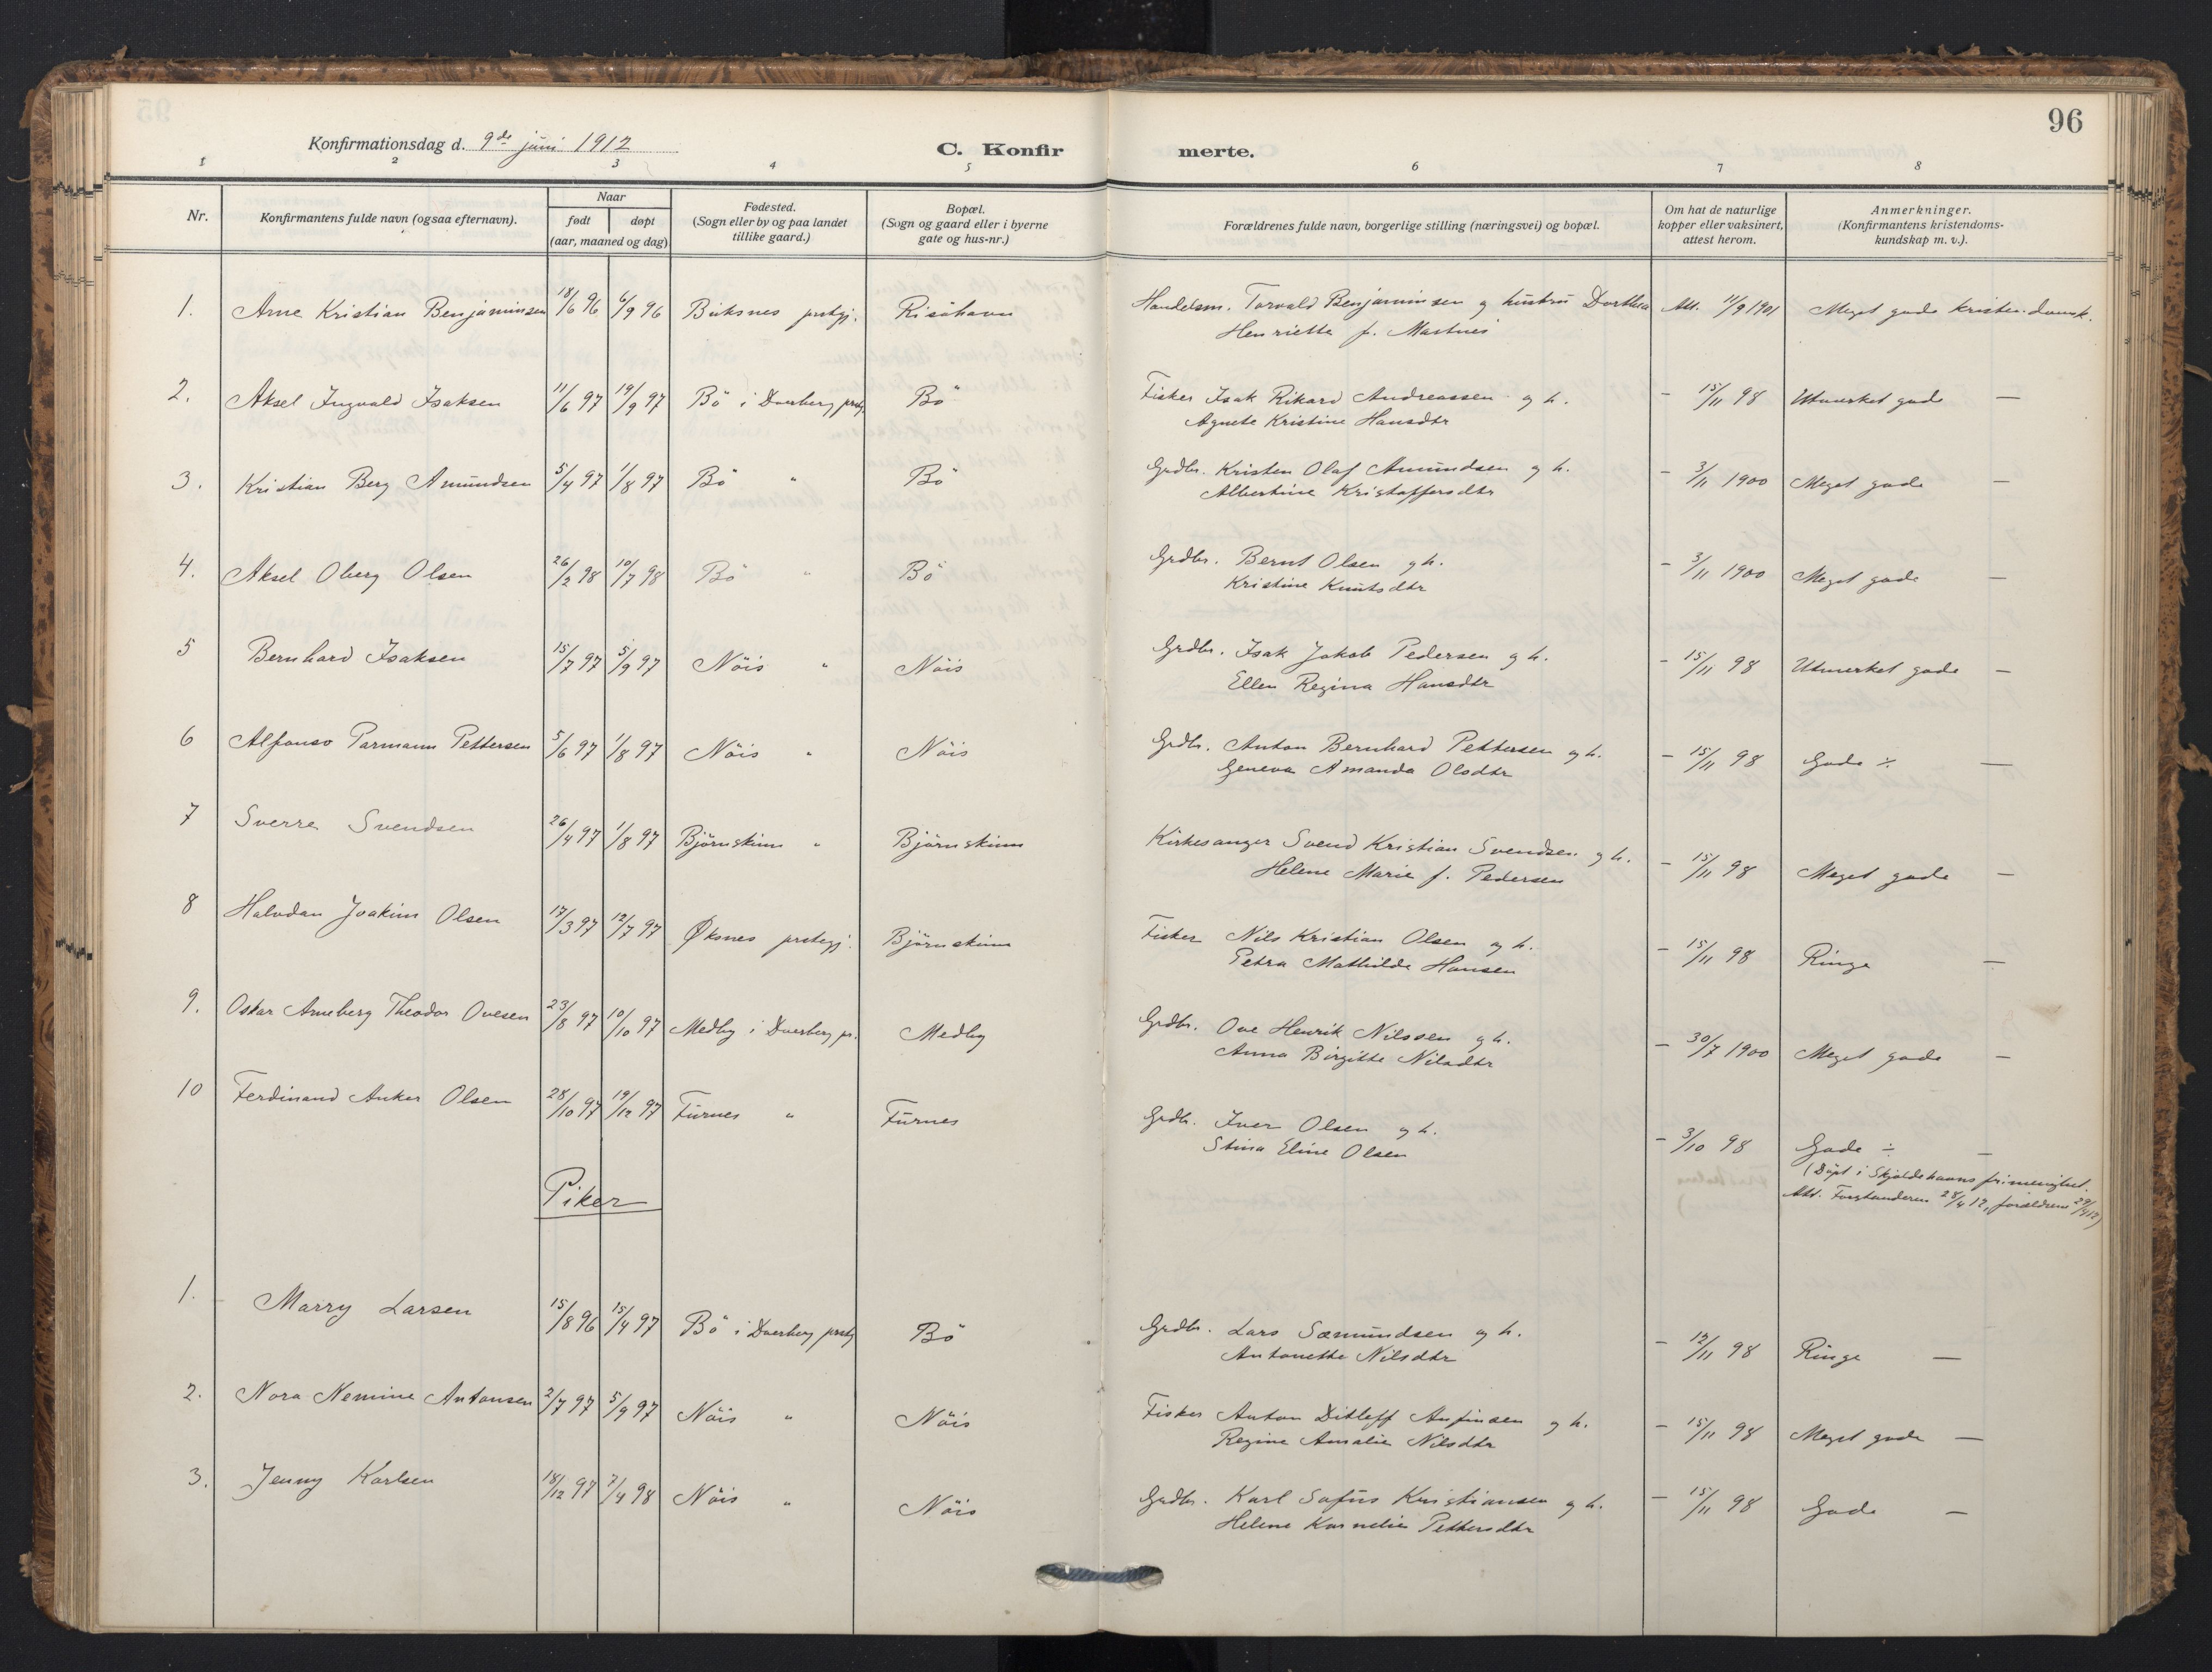 96
Konfirmationsdag d. 9de juni 1912
C. Konfir
merte.
1 2 3 4 5 6 7 8
Nr.
Konfirmantens fulde navn (ogsaa efternavn).
Naar
født døpt
(aar, maaned og dag)
Fødested.
(Sogn eller by og paa landet
tillike gaard.)
Bopæl.
(Sogn og gaard eller i byerne
gate og hus-nr.)
Forældrenes fulde navn, borgerlige stilling (næringsvei) og bopæl.
Om hat de naturlige
kopper eller vaksinert,
attest herom.
Anmerkninger.
(Konfirmantens kristendoms-
kundskap m. v.).
1. Arne Kristian Benjaminsen 18/6 96 6/9 96 Buksnes prstgj. Risöhavn Handelsm. Torvald Benjaminsen og hustru Dorthea Att. 11/9 1901 Meget gode kristen.domsk.
Henriette f. Martnes
2. Aksel Ingvald Isaksen 11/6 97 19/9 97 Bö i Dverberg prstg. Bö Fisker Isak Rikard Andreassen og h. - 15/11 98 Utmerket gode —
Agnete Kristine Hansdtr
3. Kristian Berg Amundsen 5/4 97 1/8 97 Bö " Bö Grdbr. Kristen Olaf Amundsen og h. - 3/11 1900 Meget gode —
Albertine Kristoffersdtr
4. Aksel Oberg Olsen 26/2 98 10/7 98 Bö " Bö Grdbr. Bernt Olsen og h. - 3/11 1900 Meget gode —
Kristine Knutsdtr
5 Bernhard Isaksen 15/7 97 5/9 97 Nöis " Nöis Grdbr. Isak Jakob Pedersen og h. - 15/11 98 Utmerket gode —
Ellen Regina Hansdtr
6 Alfonso Parmann Pettersen 5/6 97 1/8 97 Nöis " Nöis Grdbr. Anton Bernhard Pettersen og h. - 15/11 98 Gode ÷ —
Geneva Amanda Olsdtr
7 Sverre Svendsen 26/4 97 1/8 97 Björnskinn " Björnskinn Kirkesanger Svend Kristian Svendsen og h. - 15/11 98 Meget gode —
Helene Marie f. Pedersen
8 Halvdan Joakim Olsen 17/3 97 12/7 97 Øksnes prstegj. Björnskinn Fisker Nils Kristian Olsen og h. - 15/11 98 Ringe —
Petra Mathilde Hansen
9. Oskar Arneberg Theodor Ovesen 23/8 97 10/10 97 Medby i Dverberg pr. Medby Grdbr. Ove Henrik Nilssen og h. - 30/7 1900 Meget gode —
Anna Birgitte Nilsdtr
10 Ferdinand Anker Olsen 28/10 97 19/12 97 Furnes " Furnes Grdbr. Iver Olsen og h. - 3/10 98 Gode ÷ —
Stina Eline Olsen
(Döpt i Skjoldehavns frimenighet.
Att. Forstanderen 28/4 12, forældrene 29/4 12)
Piker
1. Marry Larsen 15/8 96 15/4 97 Bö i Dverberg prstg Bö Grdbr. Lars Samundsen og h. - 12/11 98 Ringe —
Antonette Nilsdtr
2. Nora Nemine Antonsen 2/7 97 5/9 97 Nöis " Nöis Fisker Anton Ditleff Anfinsen og h. - 15/11 98 Meget gode —
Regine Amalie Nilsdtr
3. Jenny Karlsen 18/12 97 7/4 98 Nöis " Nöis Grdbr. Karl Sofus Kristiansen og h. - 15/11 98 Gode —
Helene Kornelie Pettersdtr